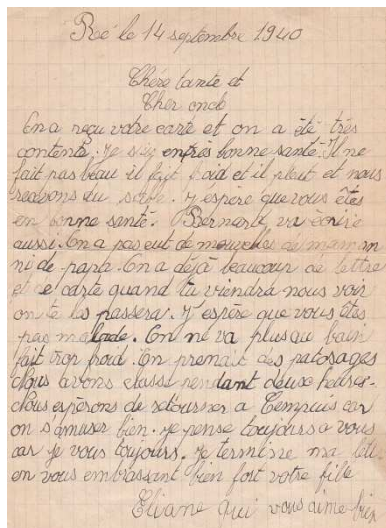 Reé le 14 septembre 1940
Chére tante et
Cher oncle
On a reçu votre carte et on a été très
contente. Je suy en près bonne santé. Il ne
fait pas beau il fait froid et il pleut et nous
du sable. J'espère que vous êtes
en bonne santé. Bernard va écrire
aussi. On a pas eut de nouvelle de maman
ni de papa. On a déjà beaucoup de lettre
et de carte quand tu viendra nous voir
on te les passera. J'espère que vous êtes
pas malade. On ne va plus au bain
fait trop froid. On prenait des patosages
Nous avons classe pendant deux heures.
Nous espérons de retourner a car
on s'amuser bien. Je pense toujours a vous
car je vous toujours. Je termine ma
en vous embrassant bien fort votre fille
Eliane qui vous aime bien